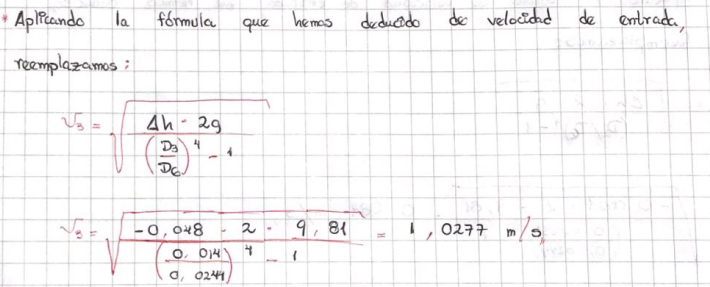 * Aplicando la fórmula que hemos deducido de velocidad de entrada,
reemplazamos:
V₃ = √(Δh · 2g / ((D₃/D₆)⁴ - 1))
V₃ = √(-0,048 · 2 · 9,81 / ((0,014/0,0244)⁴ - 1)) = 1,0277 m/s